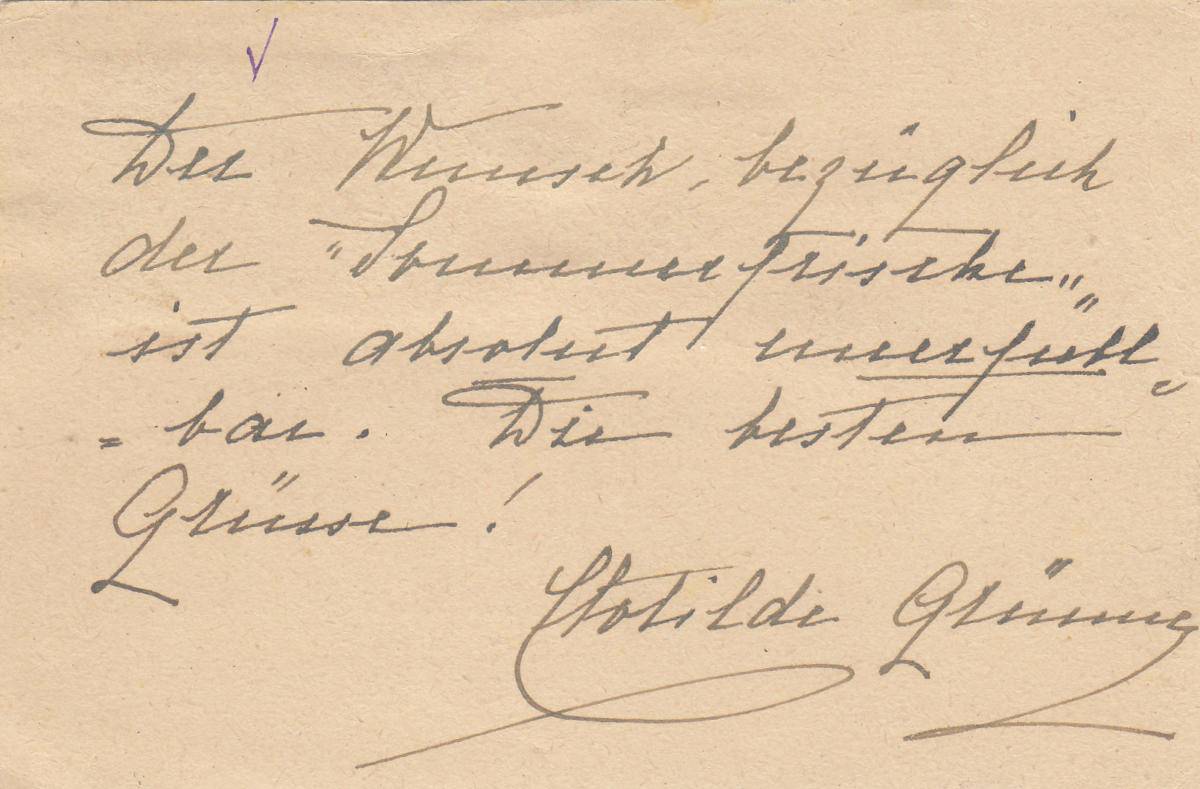 Der Wunsch, bezüglich
der "Sommerfrische"
ist absolut unerfüll
=bar. Die besten
Grüsse!
Clotilde